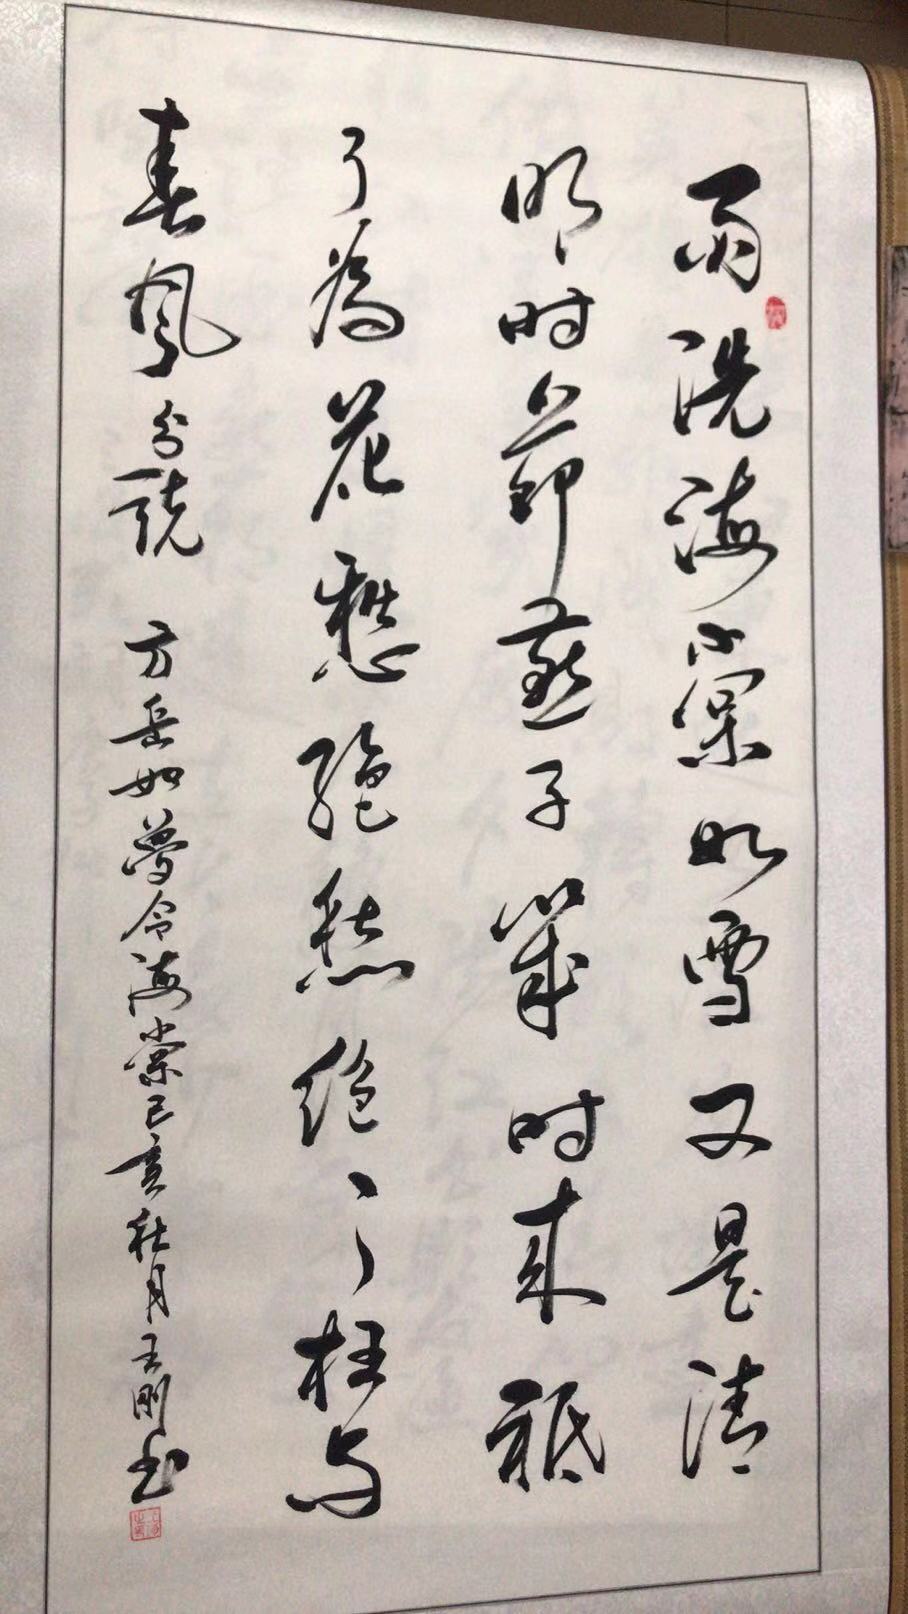 雨洗海棠如雪又是清
明时节燕子几时来祗
了为花愁绝愁绝愁绝枉与
春风分说 方岳如梦令海棠己亥秋月王刚书